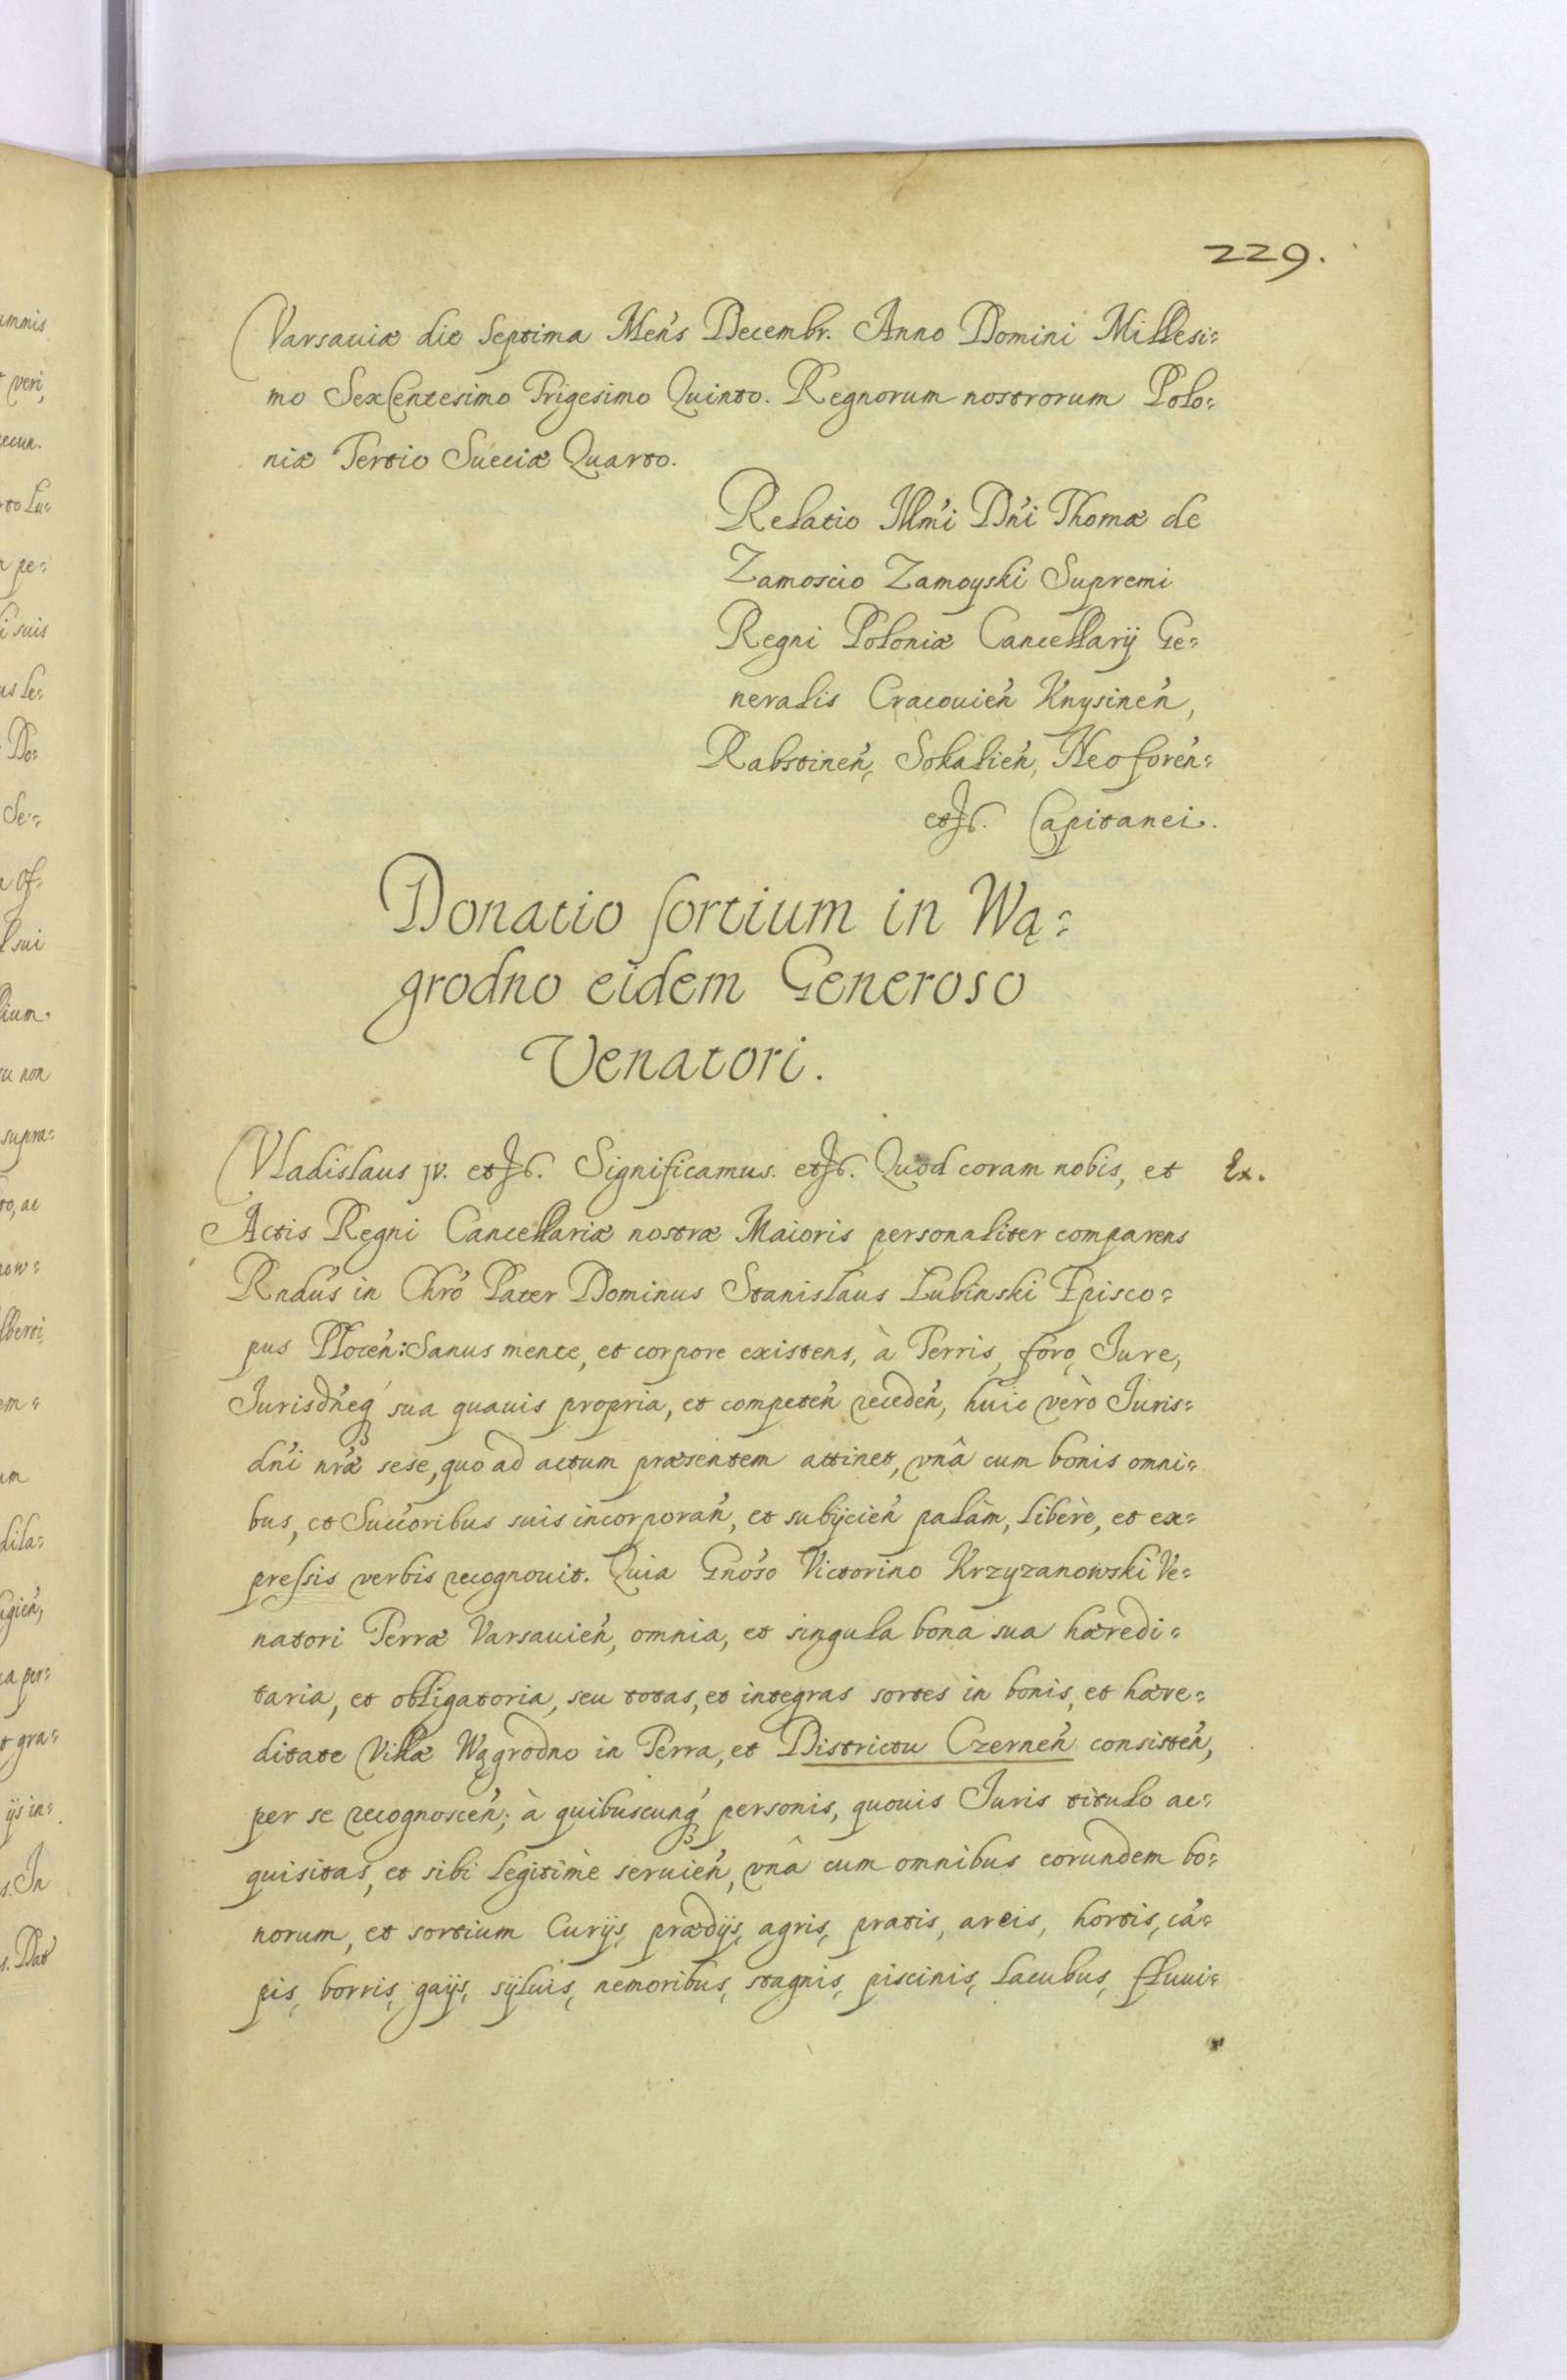 229.
Varsauiæ die Septima Mens Decembr. Anno Domini Millesi=
mo Sexcentesimo Trigesimo Quinto. Regnorum nostrorum Polo=
niæ Tertio Sueciæ Quarto.
Relatio Illmi Dni Thomæ de
Zamoscio Zamoyski Supremi
Regni Poloniæ Cancellarij Ge=
neralis Cracouien Knysinen,
Rabstinen, Sokalien, Neoforen=
etc. Capitanei.
Donatio sortium in Wą=
grodno eidem Generoso
Venatori.
Vladislaus jv. etc. Significamus. etc. Quod coram nobis, et Ex.
Actis Regni Cancellariæ nostræ Maioris personaliter comparens
Rndus in Chro Pater Dominus Stanislaus Lubinski Episco=
pus Plocen: Sanus mente, et corpore existens, à Terris, foro, Jure,
Jurisdneq sua quauis propria, et competen receden, huic vèro Juris=
dni nræ sese, quo ad actum præsentem attinet, vnâ cum bonis omni=
bus, et Succoribus suis incorporan, et subijcien palàm, libère, et ex=
pressis verbis recognouit. Quia Gnoso Victorino Krzyzanowski Ve=
natori Terræ Varsauien, omnia, et singula bona sua hæredi=
taria, et obligatoria, seu totas, et integras sortes in bonis, et hære=
ditate Villæ Wągrodno in Terra, et Districtu Czernen consisten,
per se recognoscen; à quibuscunq personis, quouis Juris titulo ac=
quisitas, et sibi legitimè seruien, vnâ cum omnibus eorundem bo=
norum, et sortium Curijs, prædijs, agris, pratis, areis, hortis, cá=
pis, borris, gaijs, syluis, nemoribus, stagnis, piscinis, lacubus, fluui=